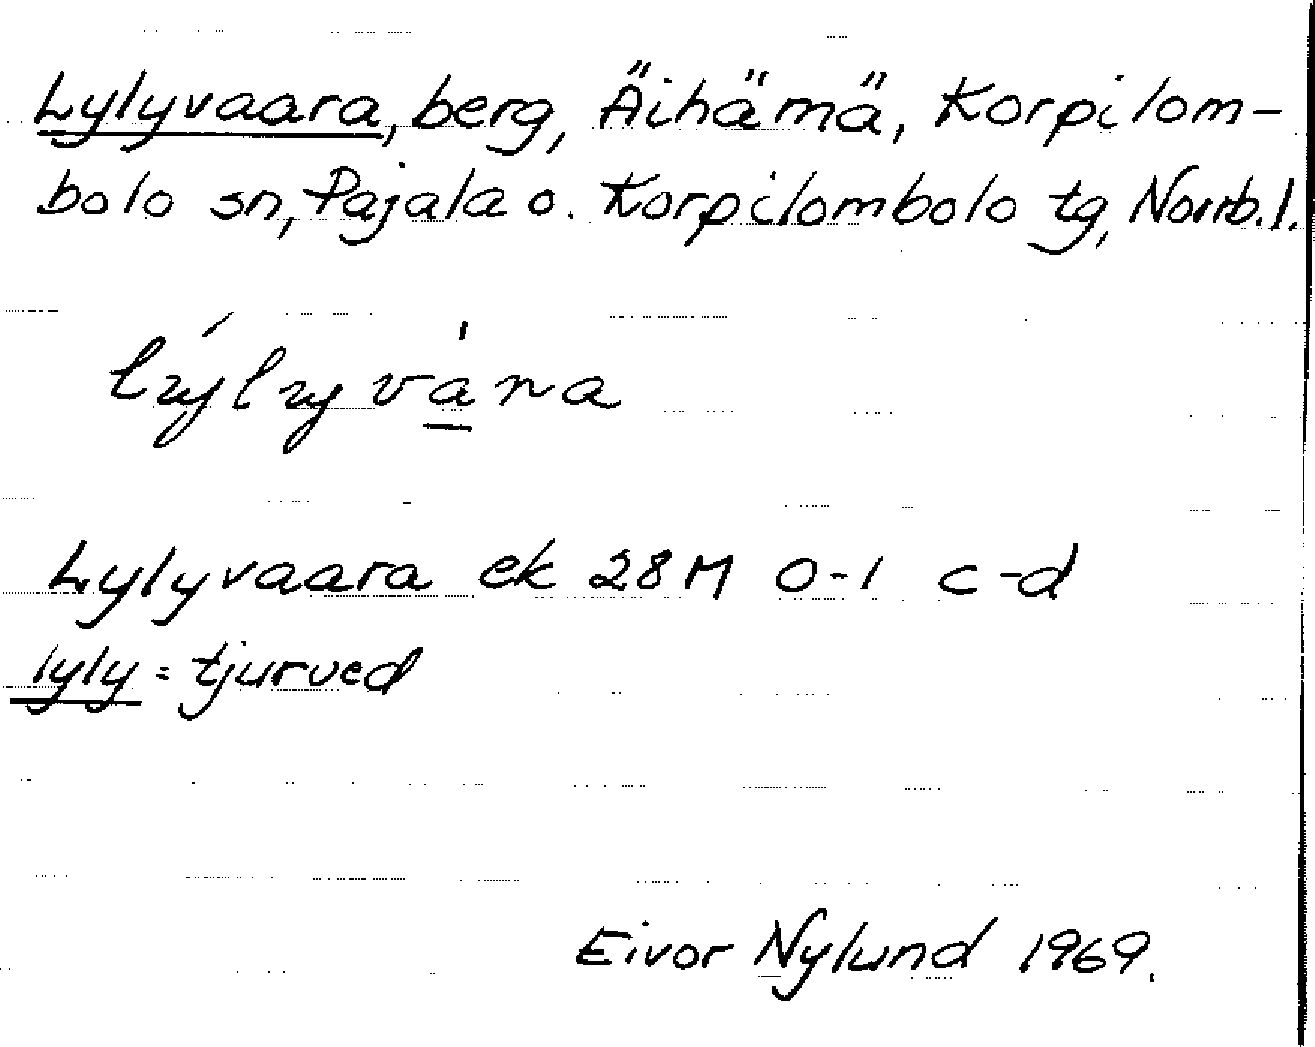 Lylyvaara, berg, Äihämä, Korpilom-
bolo sn, Pajala o. Korpilombolo tg, Norrb.l.
lýlyvàra
Lylyvaara ek 28M 0-1 c-d
lyly = tjurved
Eivor Nylund 1969.